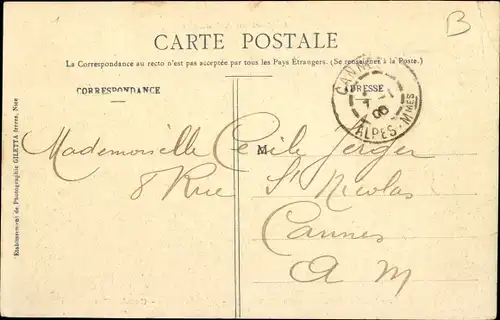 B
CARTE POSTALE
La Correspondance au recto n'est pas acceptée par tous les Pays Étrangers. (Se renseigner à la Poste.)
CORRESPONDANCE
ADRESSE
CANNES
ALPES-Mmes
Mademoiselle Cécile Jerger
M
8 Rue St Nicolas
Cannes
A M
Etablissement de Photographie GILETTA frères, Nice